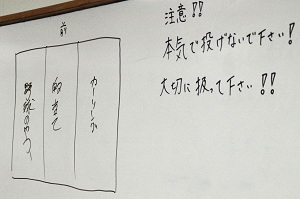 前
カーリング
的当て
野球のやつ
注意!!
本気で投げないで下さい!
大切に扱って下さい!!